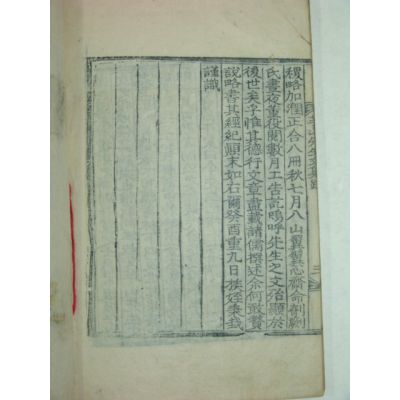 稷略加潤正合八冊秋七月入山翼翼心齋命剞劂
氏晝夜董役閱數月工告訖嗚呼先生之文治顯於
後世矣乎惟其德行文章盡載諸儒撰述余何敢贅
說略書其經紀顚末如右爾癸酉重九日族姪泰
謹識